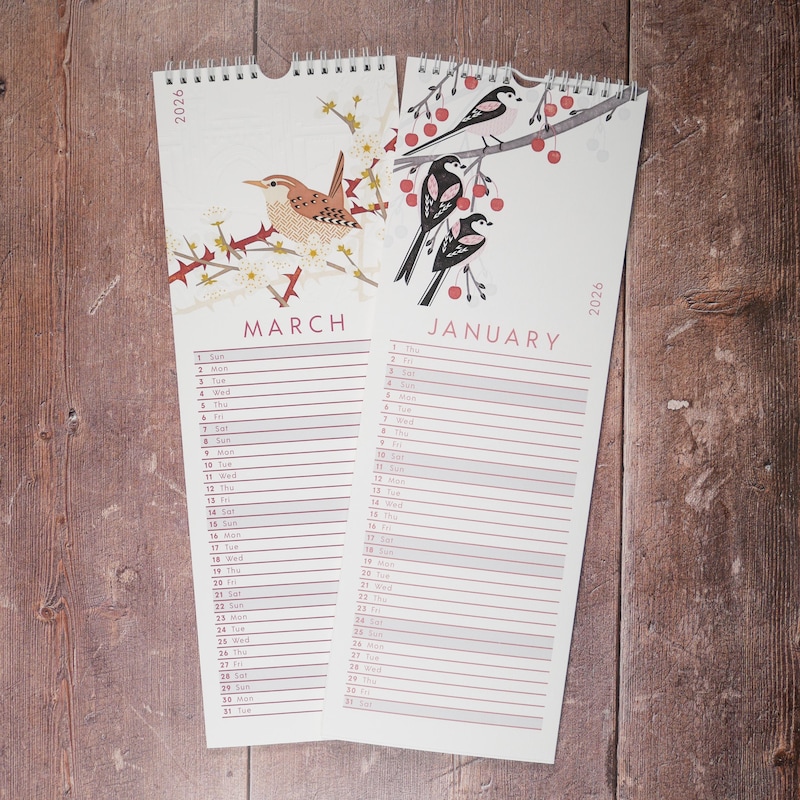 2026
MARCH
1 Sun
2 Mon
3 Tue
4 Wed
5 Thu
6 Fri
7 Sat
8 Sun
9 Mon
10 Tue
11 Wed
12 Thu
13 Fri
14 Sat
15 Sun
16 Mon
17 Tue
18 Wed
19 Thu
20 Fri
21 Sat
22 Sun
23 Mon
24 Tue
25 Wed
26 Thu
27 Fri
28 Sat
29 Sun
30 Mon
31 Tue
2026
JANUARY
1 Thu
2 Fri
3 Sat
4 Sun
5 Mon
6 Tue
7 Wed
8 Thu
9 Fri
10 Sat
11 Sun
12 Mon
13 Tue
14 Wed
15 Thu
16 Fri
17 Sat
18 Sun
19 Mon
20 Tue
21 Wed
22 Thu
23 Fri
24 Sat
25 Sun
26 Mon
27 Tue
28 Wed
29 Thu
30 Fri
31 Sat